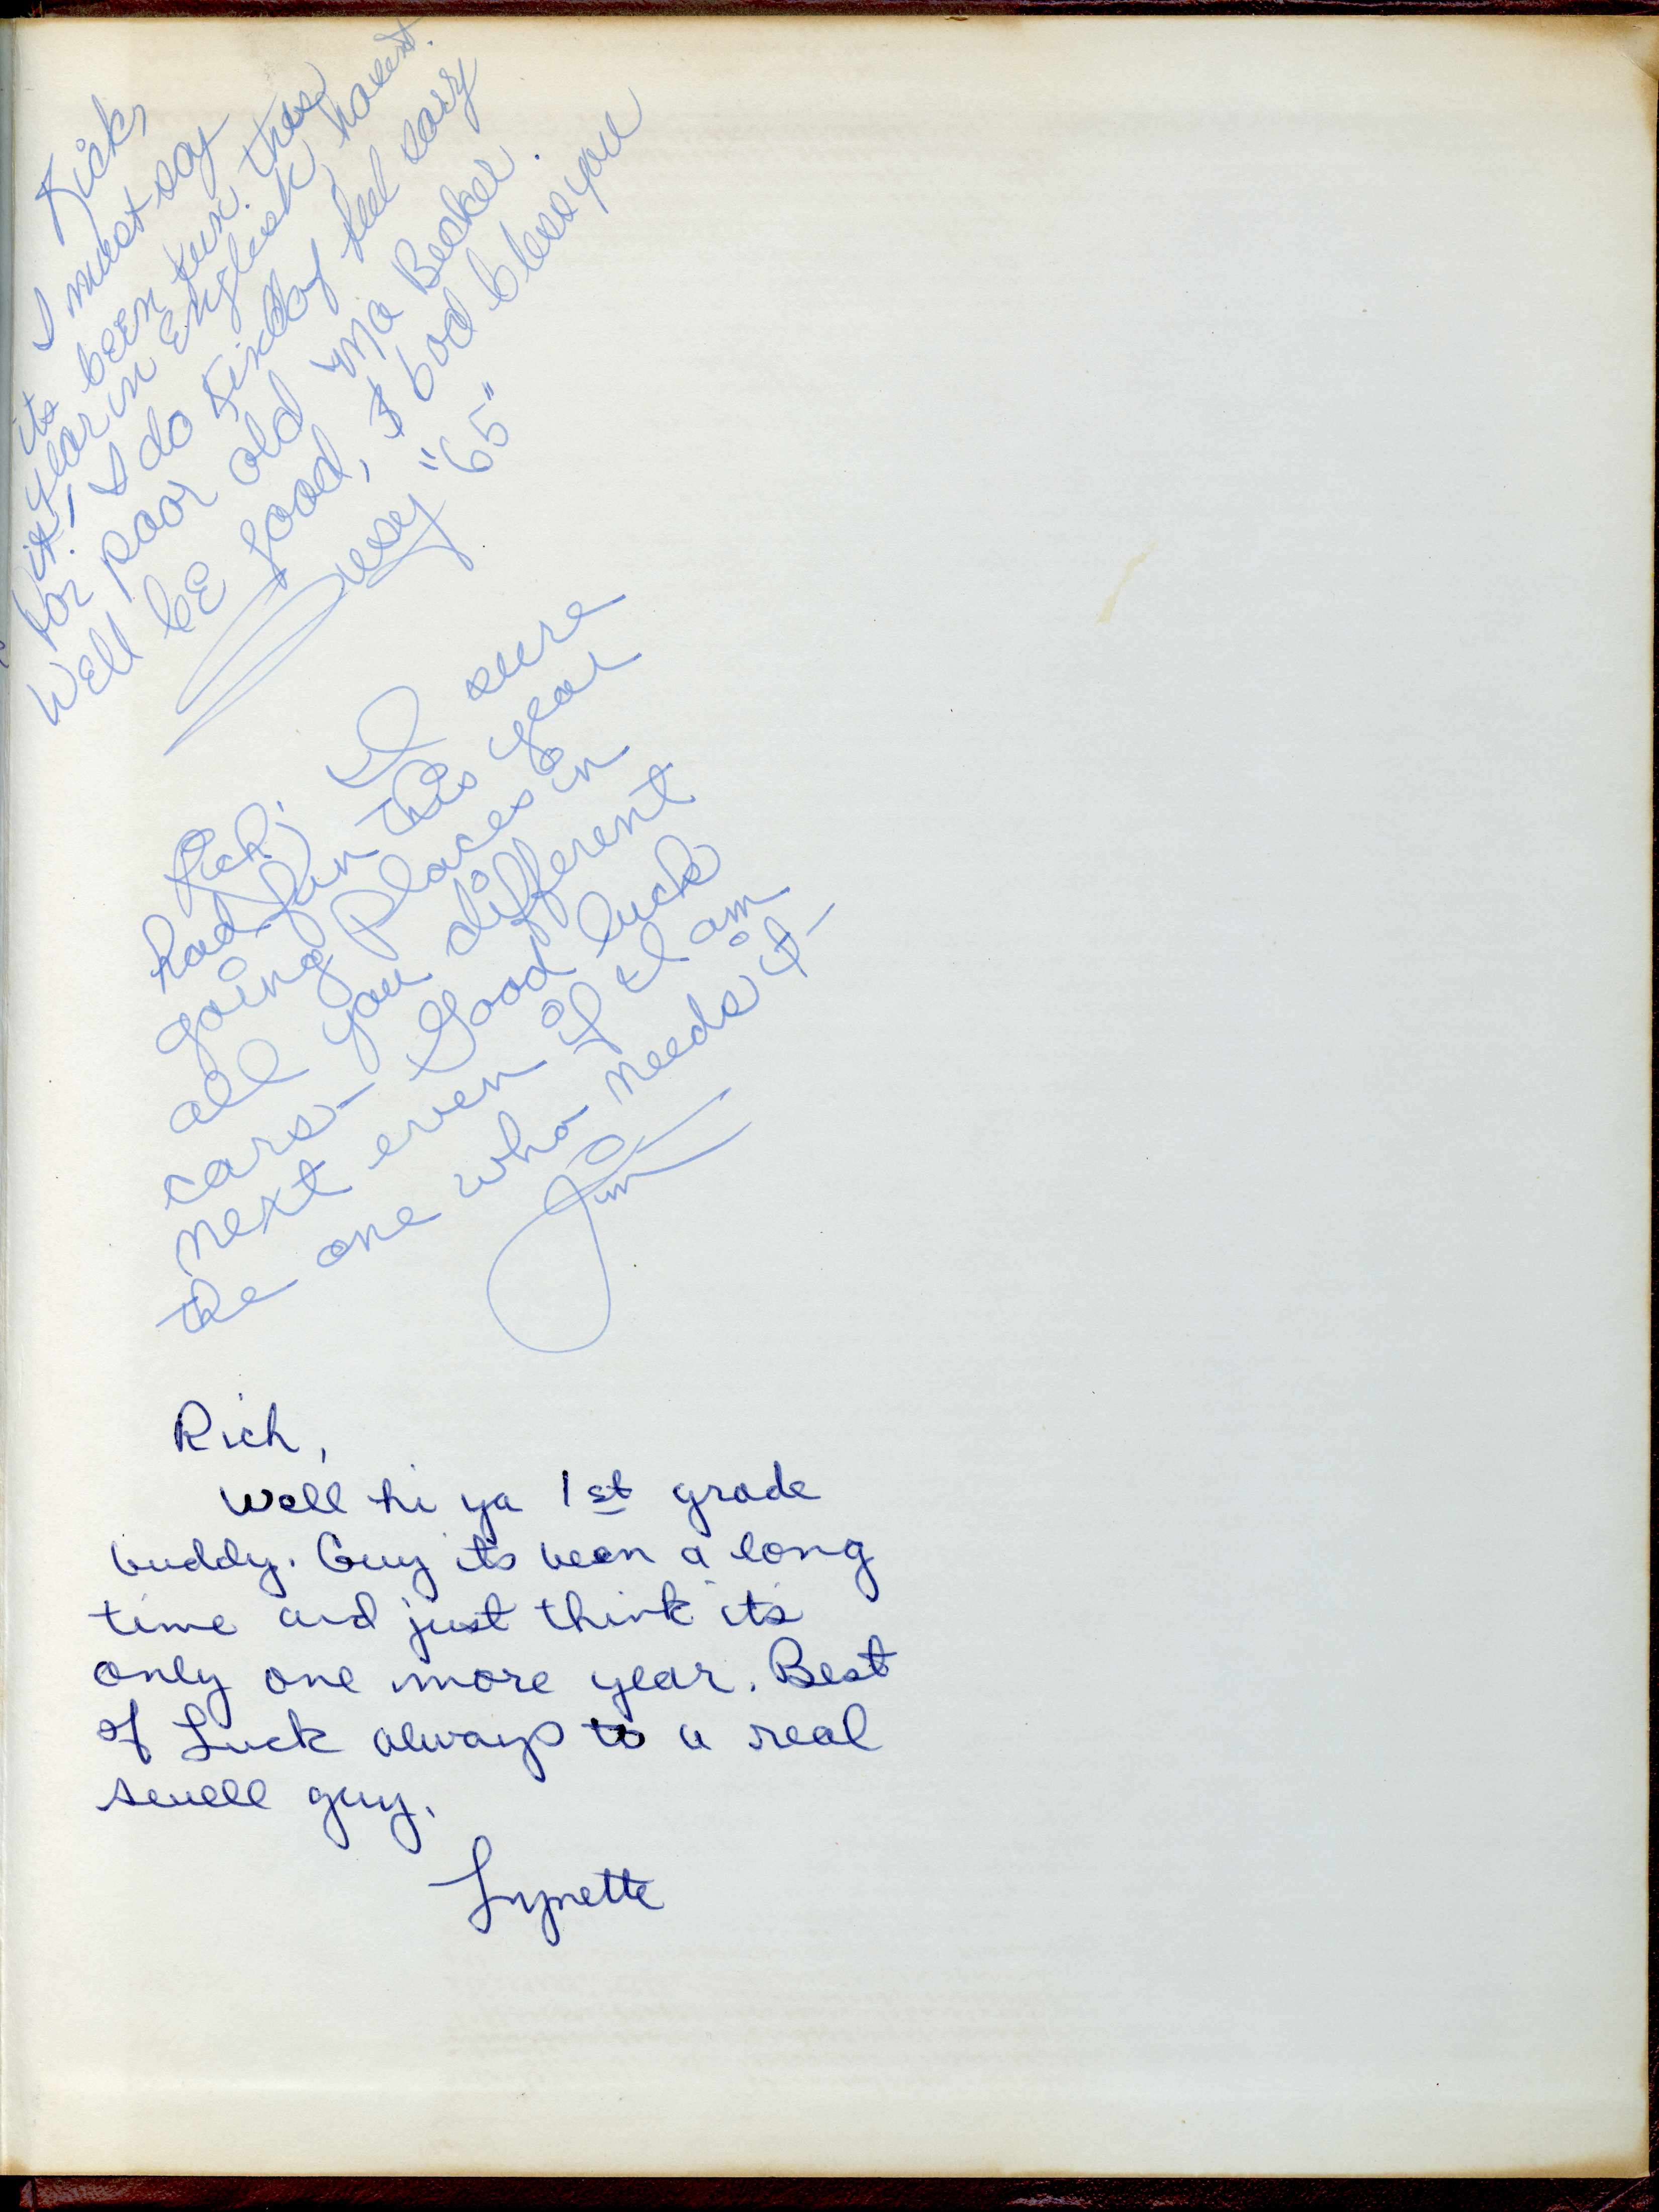 Rick,
I must say
its been fun this
year in English havent
it! I do kindof feel sorry
for poor old Ma Becker.
Well be good, & God bless you
Susy "65"
Rich, I sure
had fun this year
going places in
all you different
cars- Good luck
next even if I am
the one who needs it-
Jim
Rich,
Well hi ya 1st grade
buddy. Guy its been a long
time and just think its
only one more year. Best
of Luck always to a real
swell guy.
Lynette